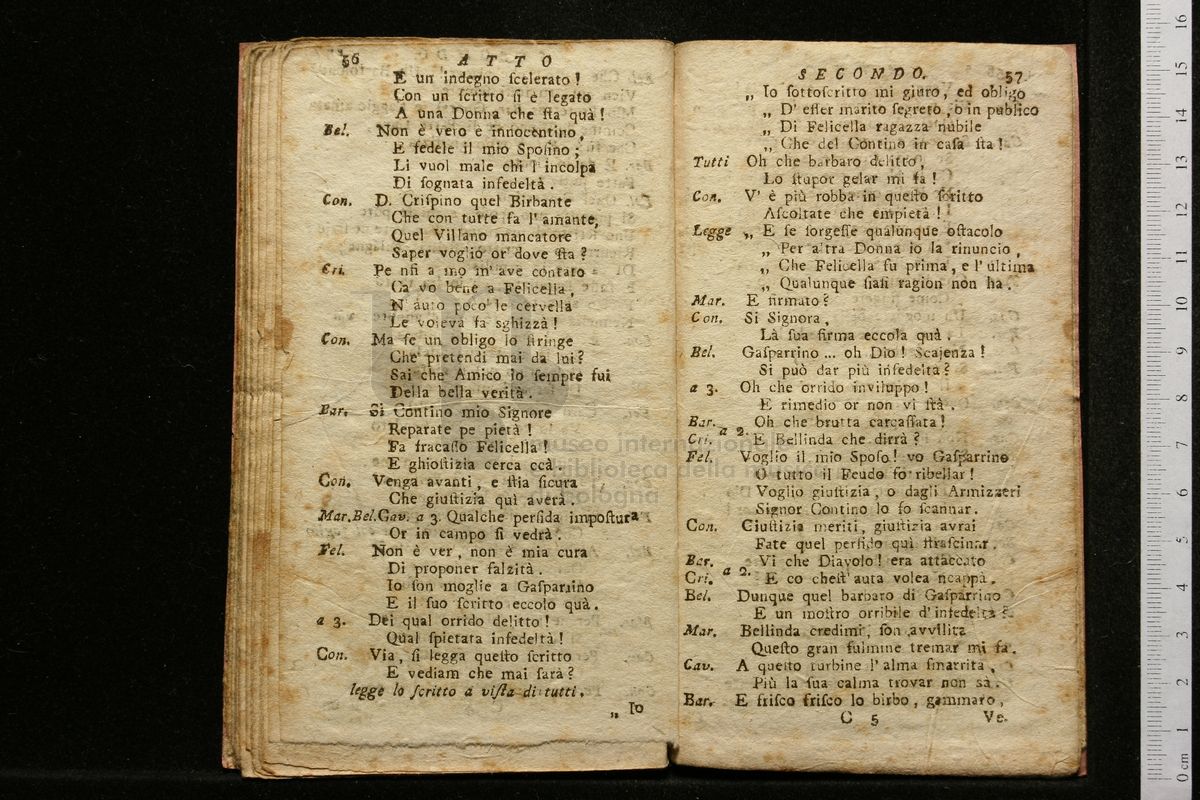 56 ATTO
E un indegno scelerato!
Con un scritto si è legato
A una Donna che sta quà!
Bel. Non è vero è innocentino,
E fedele il mio Sposino;
Li vuol male chi l'incolpa
Di sognata infedeltà.
Con. D. Crispino quel Birbante
Che con tutte fa l'amante,
Quel Villano mancatore
Saper voglio or dove sta?
Cri. Pe nfi a mo m'ave contato
Ca vo bene a Felicella,
N auto poco le cervella
Le voleva fa sghizzà!
Con. Ma se un obligo lo stringe
Che pretendi mai da lui?
Sai che Amico io sempre fui
Della bella verità.
Bar. Si Contino mio Signore
Reparate pe pietà!
Fa fracasso Felicella!
E ghiostizia cerca ccà.
Con. Venga avanti, e stia sicura
Che giustizia quì averà.
Mar.Bel.Cav. a 3. Qualche perfida impostura
Or in campo si vedrà.
Fel. Non è ver, non è mia cura
Di proponer falzità.
Io son moglie a Gasparrino
E il suo scritto eccolo quà.
a 3. Dei qual orrido delitto!
Qual spietata infedeltà!
Con. Via, si legga questo scritto
E vediam che mai sarà?
legge lo scritto a vista di tutti.
„ Io
SECONDO. 57
„ Io sottoscritto mi giuro, ed obligo
„ D' esser marito segreto, ò in publico
„ Di Felicella ragazza nubile
„ Che del Contino in casa sta!
Tutti Oh che barbaro delitto,
Lo stupor gelar mi fa!
Con. V' è più robba in questo scritto
Ascoltate che empietà!
Legge „ E se sorgesse qualunque ostacolo
„ Per altra Donna io la rinuncio,
„ Che Felicella fu prima, e l'ultima
„ Qualunque siasi ragion non ha.
Mar. E firmato?
Con. Si Signora,
Là sua firma eccola quà.
Bel. Gasparrino ... oh Dio! Scajenza!
Si può dar più infedelta?
a 3. Oh che orrido inviluppo!
E rimedio or non vi stà.
Bar. a 2. Oh che brutta carcassata!
Cri. E Bellinda che dirrà?
Fel. Voglio il mio Sposo! vo Gasparrino
O tutto il Feudo fo ribellar!
Voglio giustizia, o dagli Armizzeri
Signor Contino lo fo scannar.
Con. Giustizia meriti, giustizia avrai
Fate quel perfido quì strascinar.
Bar. a 2. Vi che Diavolo! era attaccato
Cri. E co chest' auta volea ncappà.
Bel. Dunque quel barbaro di Gasparrino
E un mostro orribile d'infedeltà?
Mar. Bellinda credimi, son avvilita
Questo gran fulmine tremar mi fa.
Cav. A questo turbine l'alma smarrita,
Più la sua calma trovar non sà.
Bar. E frisco frisco lo birbo, gammaro,
C 5 Ve.
museo internazionale
biblioteca della musica
bologna
0 cm 1 2 3 4 5 6 7 8 9 10 11 12 13 14 15 16